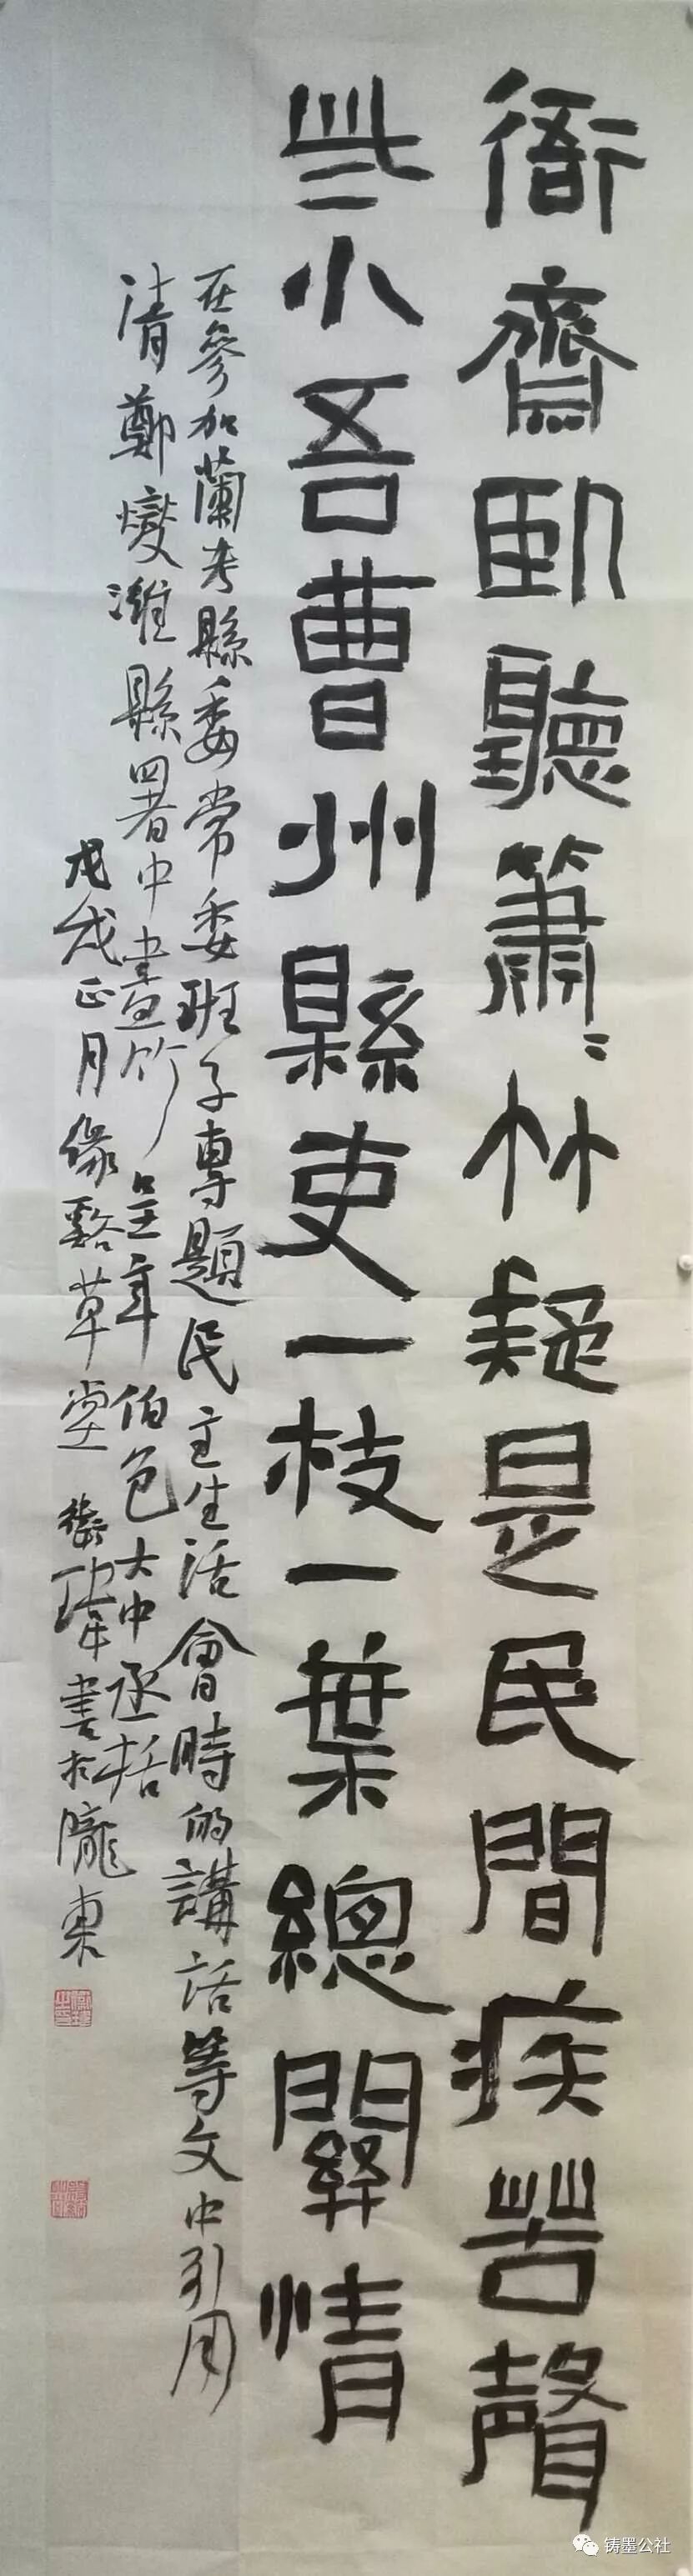 衙齋卧聽蕭〻竹疑是民間疾苦聲
些小吾曹州縣吏一枝一葉總關情
在參加蘭考縣委常委班子專題民主生活會時的講話等文中引用
清鄭燮濰縣署中畫竹呈年伯包大中丞括
戊戌正月緣谿草堂 書於隴東
铸墨公社